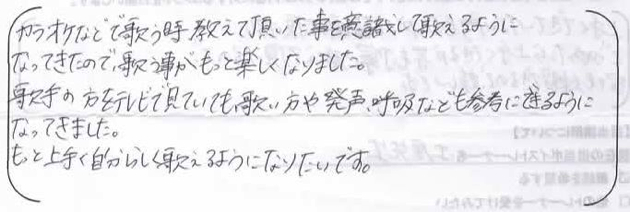 カラオケなどで歌う時、教えて頂いた事を意識して歌えるように
なってきたので、歌う事がもっと楽しくなりました。
歌手の方をテレビで見ていても、歌い方や発声、呼吸なども参考に出来るように
なってきました。
もっと上手く自分らしく歌えるようになりたいです。